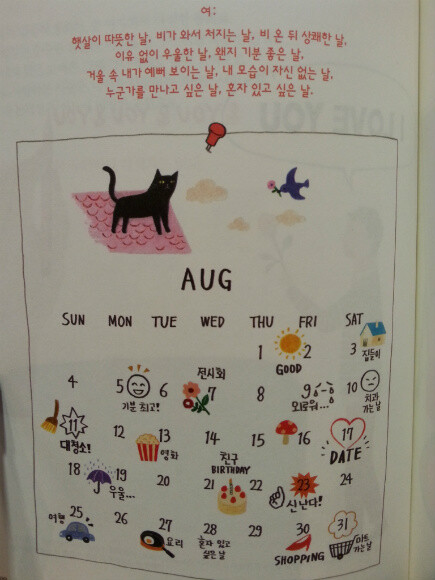 여:
햇살이 따뜻한 날, 비가 와서 처지는 날, 비 온 뒤 상쾌한 날,
이유 없이 우울한 날, 왠지 기분 좋은 날,
거울 속 내가 예뻐 보이는 날, 내 모습이 자신 없는 날,
누군가를 만나고 싶은 날, 혼자 있고 싶은 날.
I LOVE YOU
AUG
SUN MON TUE WED THU FRI SAT
1 2 3
GOOD
집들이
4 5 6 7 8 9 10
기분 최고!
전시회
외로워...
치과
가는 날
11 12 13 14 15 16 17
대청소!
영화
DATE
18 19 20 21 22 23 24
우울...
친구
BIRTHDAY
신난다!
25 26 27 28 29 30 31
여행
요리
혼자 있고
싶은 날
SHOPPING
마트
가는 날